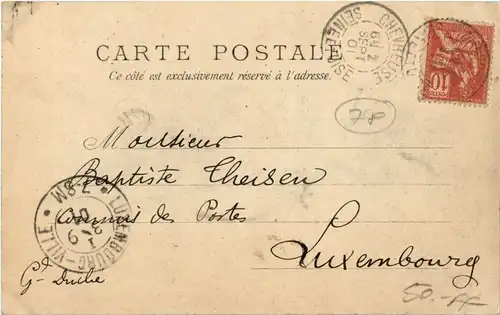 CARTE POSTALE
Ce côté est exclusivement réservé à l'adresse.
CHEVREUSE
SEINE-ET-OISE
2
SEPT
01
10
78
Monsieur
Baptiste Theisen
Commis des Postes
Luxembourg
Gd Duché
LUXEMBOURG-VILLE
7-8M
50.-